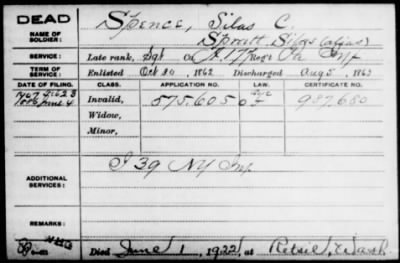 DEAD
NAME OF SOLDIER:
Spence, Silas C.
Spratt, Silas (alias)
SERVICE:
Late rank, Sgt Co. 177 Reg't Pa Inf
TERM OF SERVICE:
Enlisted Oct 30, 1862 Discharged Aug 5, 1863
DATE OF FILING. CLASS. APPLICATION NO. LAW. CERTIFICATE NO.
Invalid, 575.605 937,680
Widow,
Minor,
ADDITIONAL SERVICES:
I 39 NY Inf.
REMARKS:
Died June 1, 1922, at Retsil, Wash.